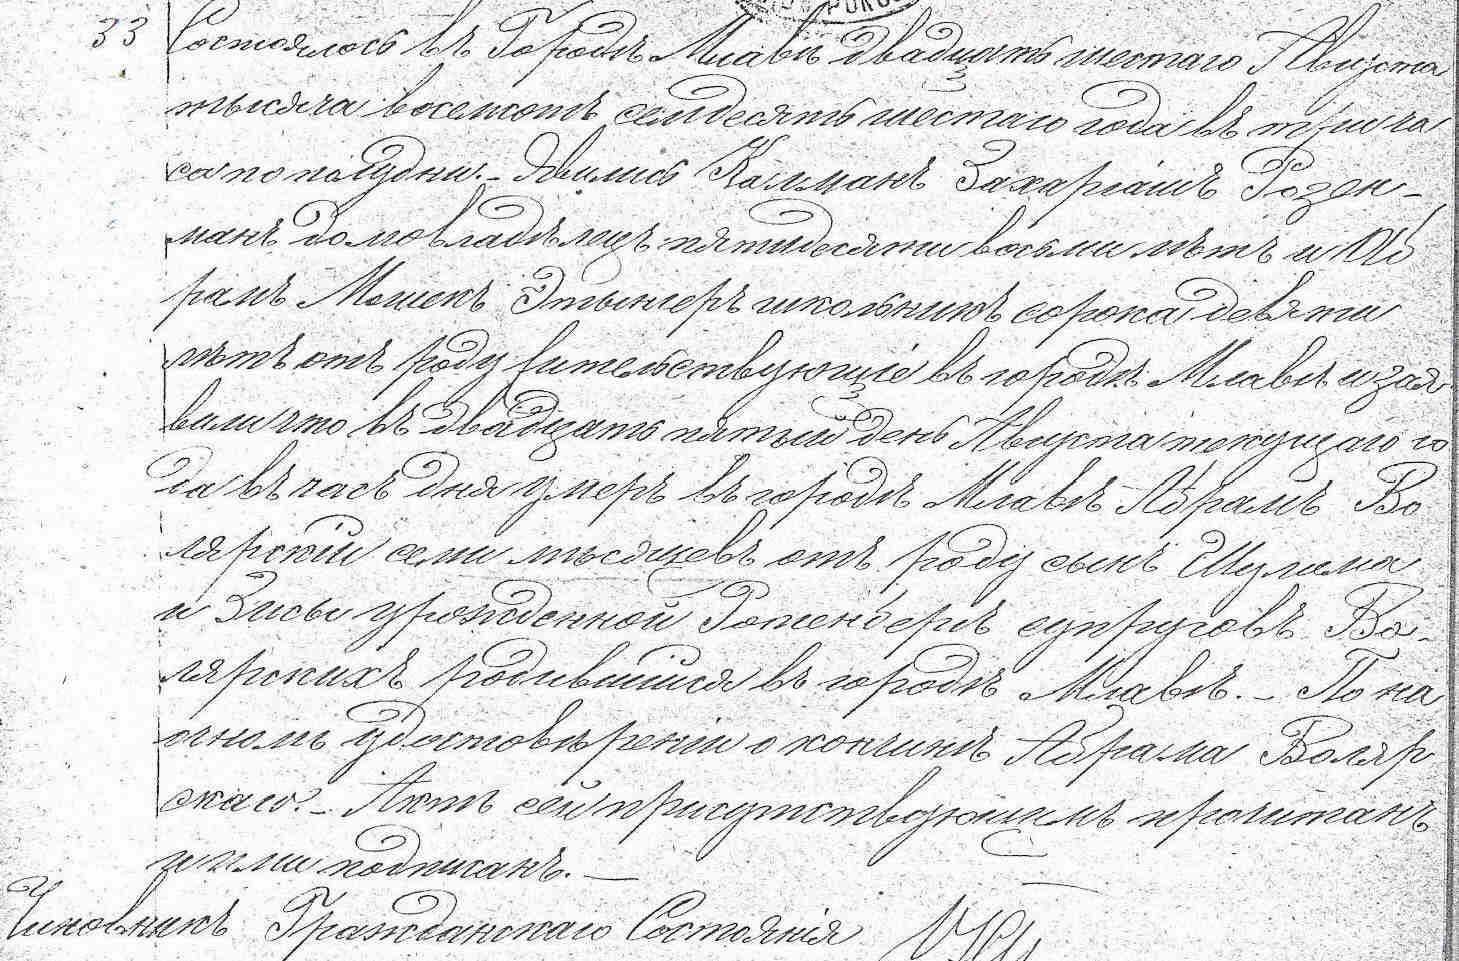 33 Состоялось въ Городѣ Млавѣ двадцать шестаго Августа
тысяча восемсотъ семдесятъ шестаго года въ три ча
са по полудни. – Явились Калманъ Захаріашъ Розен-
манъ домовладѣлецъ пятидесяти восьми лѣтъ и Аб
рамъ Мошекъ Этынгеръ школьникъ сорока девяти
лѣтъ отъ роду жительствующіе въ городѣ Млавѣ и зая
вили что въ двадцать пятый день Августа текущаго го
да въ часъ дня умеръ въ городѣ Млавѣ Абрамъ Во
лярскій семи мѣсяцевъ отъ роду сынъ Шулима
и Зисы урожденной Ротенбергъ супруговъ Во-
лярскихъ родившійся въ городѣ Млавѣ. – По на
очномъ удостовѣреніи о кончинѣ Абрама Воляр
скаго. – Актъ сей присутствующимъ прочитанъ
и ими подписанъ. –
Чиновникъ Гражданскаго Состоянія